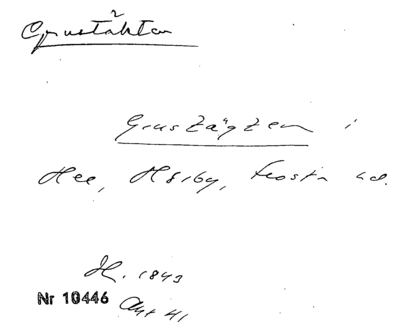 Grustäkter
Grustägten i
Hee, Hörby, Frosta hd.
H. 1843
Nr 10446 Akt 41